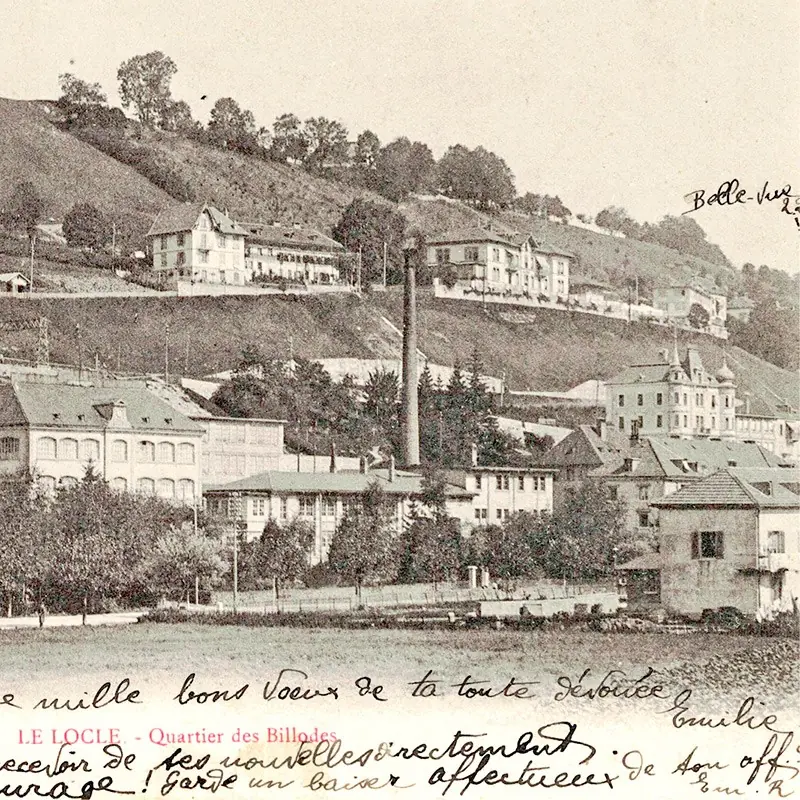 Belle-Vue
mille bons voeux de ta toute dévouée
Emilie
LE LOCLE. - Quartier des Billodes.
recevoir de tes nouvelles directement.
! Garde un baiser affectueux de ton aff
Em. R